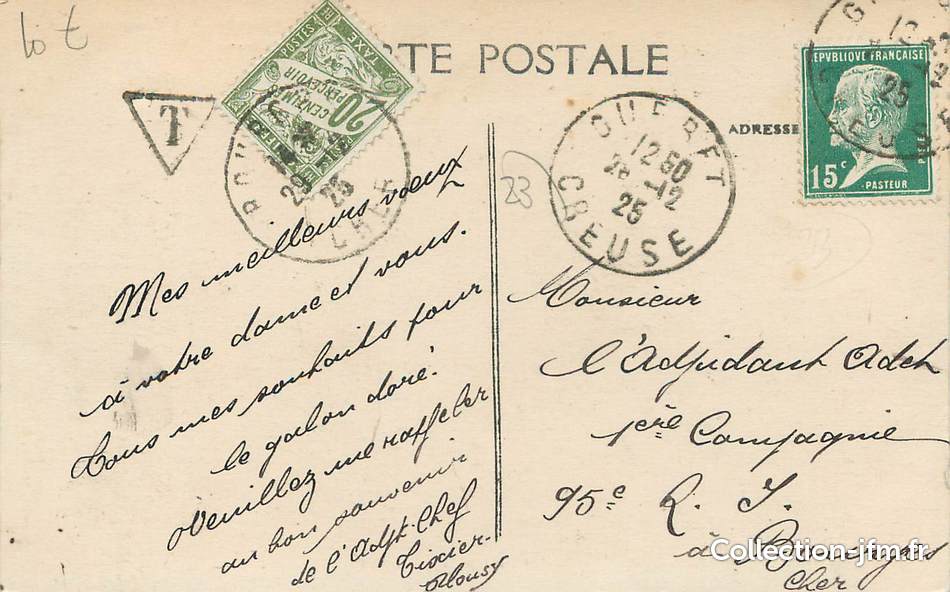 10 F
CARTE POSTALE
T
POSTES
TAXE
20
CENTIMES
A PERCEVOIR
ADRESSE
REPUBLIQUE FRANÇAISE
15c
PASTEUR
GUERET
12 50
28 -12
25
CREUSE
23
Mes meilleurs vœux
à votre dame et vous.
Tous mes souhaits pour
le galon doré.
Veuillez me rappeler
au bon souvenir
de l'Adjt-Chef
Tixier-
Monsieur
l'Adjudant Adch
1ère Compagnie
95e R. I.
à Bourges
Cher
Collection-jfm.fr